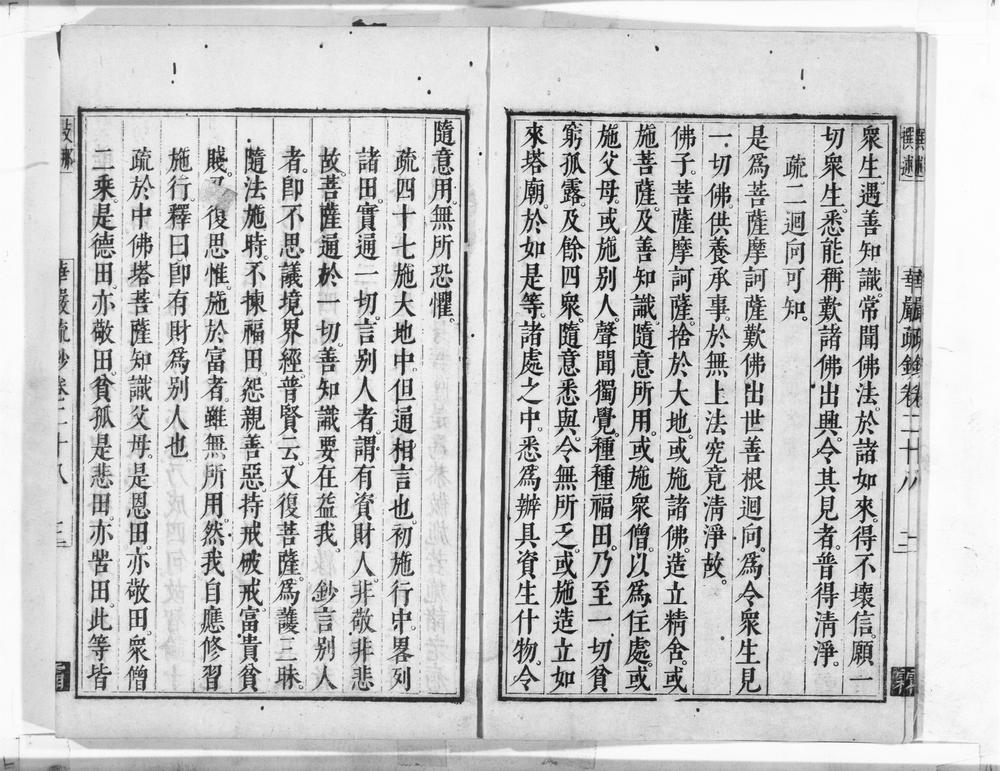 眾生遇善知識常聞佛法於諸如來得不壞信願一
切眾生悉能稱歎諸佛出興令其見者普得清淨
疏二迴向可知
是為菩薩摩訶薩歎佛出世善根迴向為令眾生見
一切佛供養承事於無上法究竟清淨故
佛子菩薩摩訶薩捨於大地或施諸佛造立精舍或
施菩薩及善知識隨意所用或施眾僧以為住處或
施父母或施別人聲聞獨覺種種福田乃至一切貧
窮孤露及餘四眾隨意悉與令無所乏或施造立如
來塔廟於如是等諸處之中悉為辦具資生什物令
華嚴疏鈔卷二十八 三
隨意用無所恐懼
疏四十七施大地中但通相言也初施行中畧列
諸田實通一切言別人者謂有資財人非敬非悲
故菩薩通於一切善知識要在益我 鈔言別人
者即不思議境界經普賢云又復菩薩為護三昧
隨法施時不揀福田怨親善惡持戒破戒富貴貧
賤又復思惟施於富者雖無所用然我自應修習
施行釋曰即有財為別人也
疏於中佛塔菩薩知識父母是恩田亦敬田眾僧
二乘是德田亦敬田貧孤是悲田亦苦田此等皆
華嚴疏鈔卷二十八 三